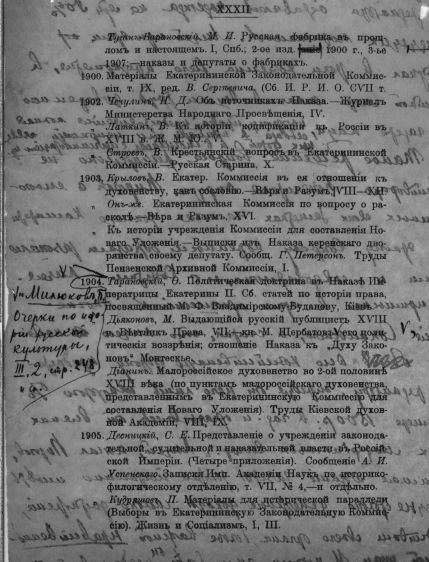 XXXII
Туганъ-Барановскій, М. И. Русская фабрика въ прош-
ломъ и настоящемъ. I, Спб.; 2-ое изд. 1900 г., 3-ье
1907.—наказы и депутаты о фабрикахъ.
1900. Матеріалы Екатерининской Законодательной Коммис-
сіи, т. IX, ред. В. Сергѣевича. (Сб. И. Р. И. О. CVII т.
1902. Чечулинъ, Н. Д. Объ источникахъ Наказа.—Журналъ
Министерства Народнаго Просвѣщенія, IV.
Латкинъ, В. Къ исторіи кодификаціи въ Россіи въ
XVIII в. Ж. М. Ю., V.
Строевъ, В. Крестьянскій вопросъ въ Екатерининской
Коммиссіи.—Русская Старина, X.
1903. Крыловъ, В. Екатер. Коммиссія въ ея отношеніи къ
духовенству, какъ сословію.—Вѣра и Разумъ, VIII—XII.
Онъ-же. Екатерининская Коммиссія по вопросу о ра-
сколѣ.—Вѣра и Разумъ, XVI.
Къ исторіи учрежденія Коммиссіи для составленія Но-
ваго Уложенія.—Выписки изъ Наказа керенскаго дво-
рянства своему депутату. Сообщ. Г. Петерсонъ. Труды
Пензенской Архивной Коммиссіи, I.
1904. Тарановскій, Ѳ. Политическая доктрина въ Наказѣ Им-
ператрицы Екатерины II. Сб. статей по исторіи права,
посвященный М. Ф. Владимірскому-Буданову, Кіевъ.
Дьяконовъ, М. Выдающійся русскій публицистъ XVIII
в. Вѣстникъ Права, VII.—кн. М. Щербатовъ; его поли-
тическія воззрѣнія; отношеніе Наказа къ „Духу Зако-
новъ“ Монтескье.
Діанинъ. Малороссійское духовенство во 2-ой половинѣ
XVIII вѣка (по пунктамъ малороссійскаго духовенства,
представленнымъ въ Екатерининскую Коммиссію для
составленія Новаго Уложенія). Труды Кіевской духов-
ной Академіи, VIII, IX.
1905. Десницкій, С. Е. Представленіе о учрежденіи законода-
тельной, судительной и наказательной власти въ Россій-
ской Имперіи. (Четыре приложенія). Сообщеніе А. И.
Успенскаго. Записки Имп. Академіи Наукъ по историко-
филогическому отдѣленію, т. VII, № 4,—и отдѣльно.
Кудряшовъ, П. Матеріалы для исторической параллели
(Выборы въ Екатерининскую Законодательную Коммис-
сію). Жизнь и Соціализмъ, I, III.
Милюковъ, П.
Очерки по исто-
ріи русской
культуры,
III, 2, стр. 248
и сл.